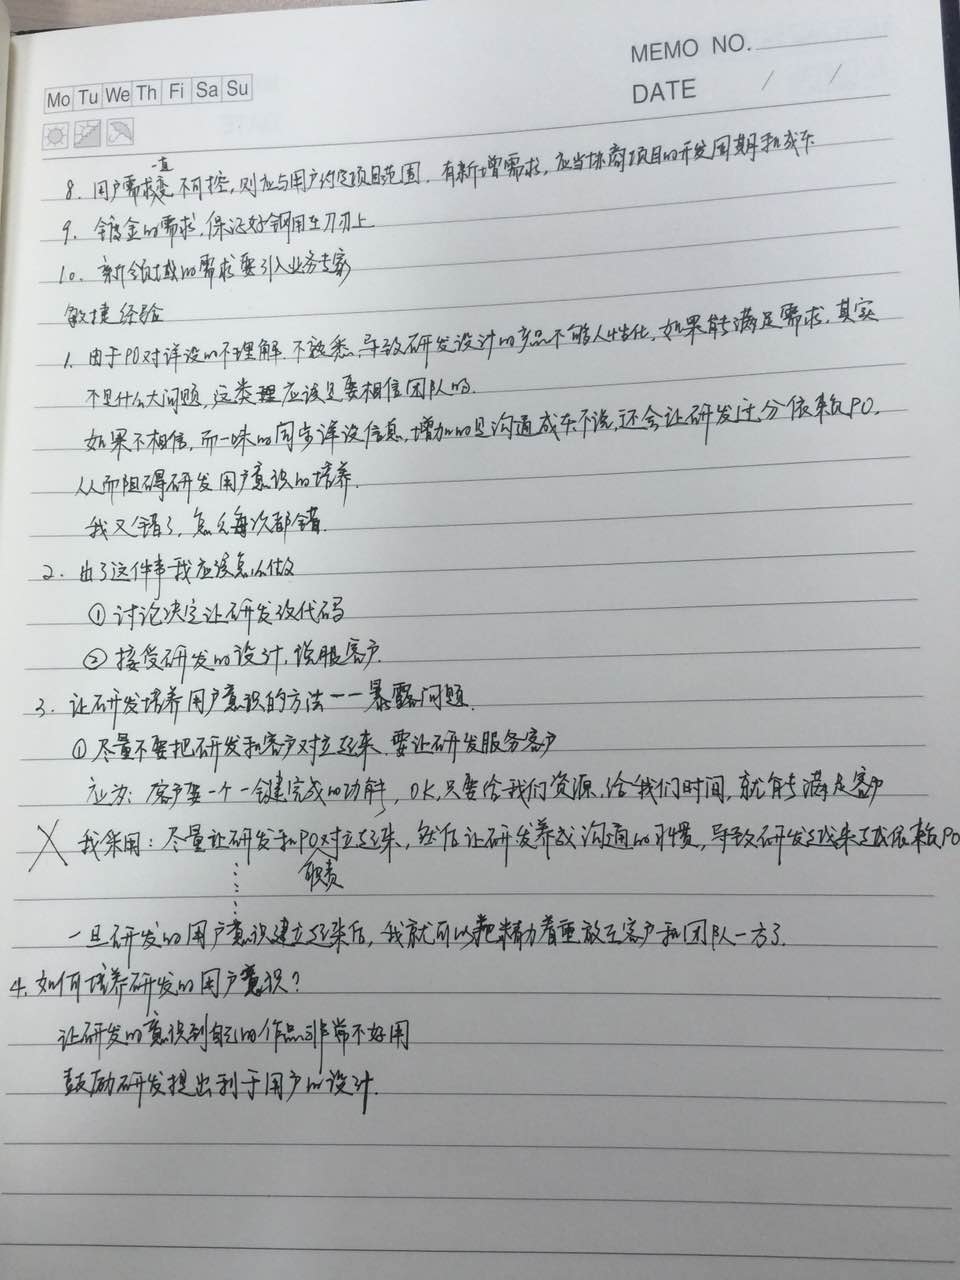 MEMO NO.
Mo Tu We Th Fi Sa Su
DATE / /
8. 用户需求一直变不可控，则应与用户约定项目范围，有新增需求，应当协商项目的开发周期和成本
9. 镀金的需求，保证好钢用在刀刃上
10. 新领域的需求要引入业务专家
敏捷经验
1. 由于PO对详设的不理解、不熟悉，导致研发设计的产品不够人性化，如果能满足需求，其实
不是什么大问题，这类理应该是要相信团队的。
如果不相信，而一味的同步详设信息，增加的是沟通成本不说，还会让研发过分依赖PO，
从而阻碍研发用户意识的培养。
我又错了，怎么每次都错。
2. 出了这件事我应该怎么做
① 讨论决定让研发改代码
② 接受研发的设计，说服客户.
3. 让研发培养用户意识的方法——暴露问题.
① 尽量不要把研发和客户对立起来、要让研发服务客户
应为：客户要一个一键完成的功能，OK，只要给我们资源，给我们时间，就能满足客户
我采用：尽量让研发和PO对立起来，然后让研发养成沟通的习惯，导致研发越来越依赖PO
职责
一旦研发的用户意识建立起来后，我就可以把精力着重放在客户和团队一方了.
4. 如何培养研发的用户意识？
让研发的意识到自己的作品非常不好用
鼓励研发提出利于用户的设计.